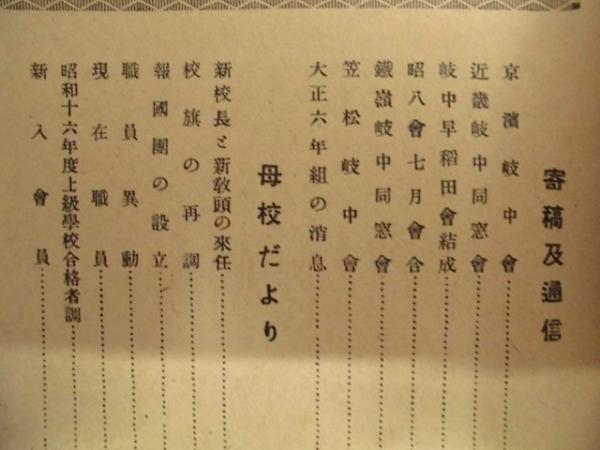 寄稿及通信
京濱岐中會
近畿岐中同窓會
岐中早稻田會結成
昭八會七月會合
鐵嶺岐中同窓會
笠松岐中會
大正六年組の消息
母校だより
新校長と新敎頭の來任
校旗の再調
報國團の設立
職員異動
現在職員
昭和十六年度上級學校合格者調
新入會員